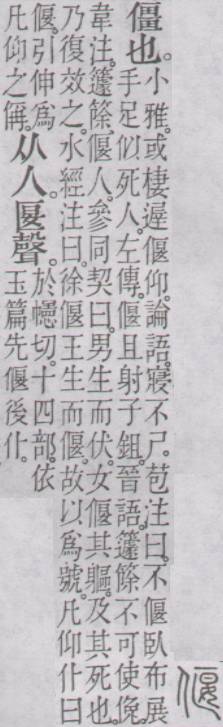 偃
僵也。
小雅。或棲遲偃仰。論語。寢不尸。苞注曰。不偃臥布展
手足似死人。左傳。偃且射子鉏。晉語。籧篨不可使俛。
韋注。籧篨偃人。參同契曰。男生而伏。女偃其軀。及其死也。
乃復效之。水經注曰。徐偃王生而偃。故以爲號。凡仰仆曰
偃。引伸爲
凡仰之偁。
从人。匽聲。
於幰切。十四部。依
玉篇先偃後仆。